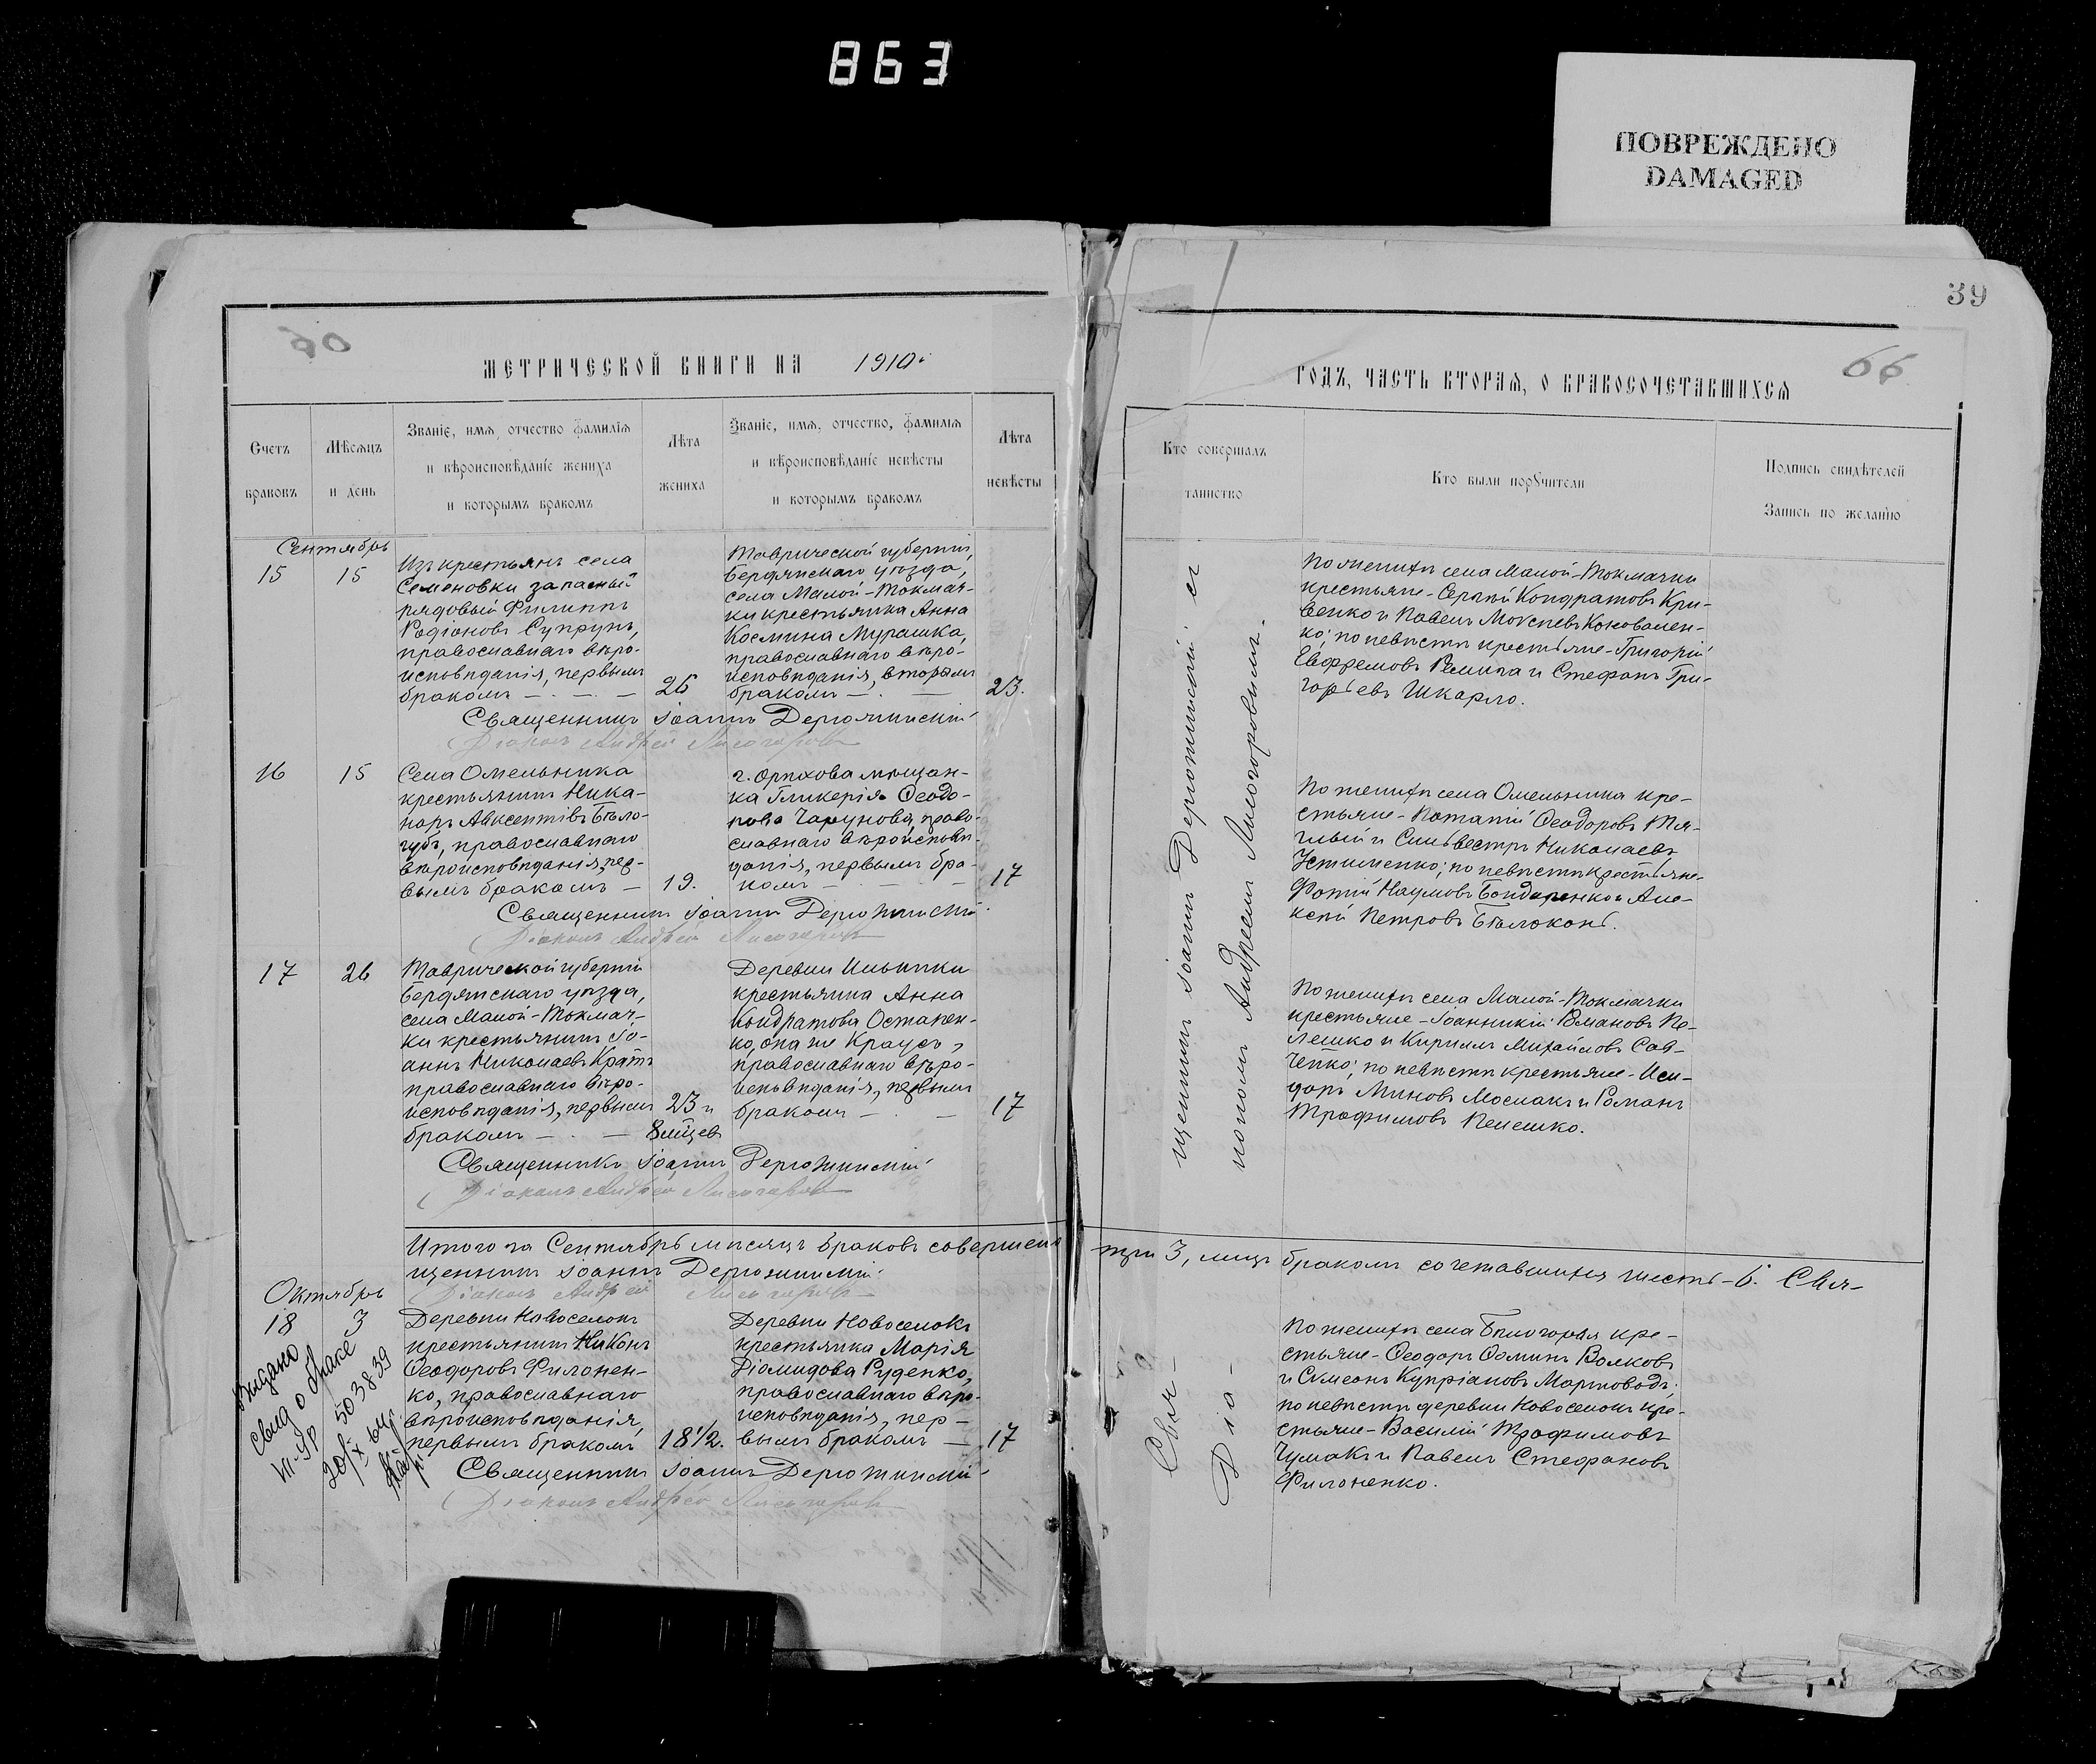 863
ПОВРЕЖДЕНО
DAMAGED
39
66
МЕТРИЧЕСКОЙ КНИГИ НА 1910
ГОДЪ, ЧАСТЬ ВТОРАЯ, О БРАКОСОЧЕТАВШИХСЯ
Счетъ
браковъ
Мѣсяцъ
и день
Званіе, имя, отчество фамилія
и вѣроисповѣданіе жениха
и которымъ бракомъ
Лѣта
жениха
Званіе, имя, отчество, фамилія
и вѣроисповѣданіе невѣсты
и которымъ бракомъ
Лѣта
невѣсты
Кто совершалъ
таинство
Кто были поручители
Подпись свидѣтелей
Запись по желанію
Сентябрь
15 15
Изъ крестьянъ села
Семеновки запасный
рядовый Филиппъ
Родіоновъ Супрунъ,
православнаго вѣро-
исповѣданія, первымъ
бракомъ
26
Таврической губерніи,
Бердянскаго уѣзда,
села Малой-Токмач-
ки крестьянка Анна
Космина Мурашка,
православнаго вѣро-
исповѣданія, вторымъ
бракомъ
23.
По женихѣ села Малой-Токмачки
крестьяне-Сергѣй Кондратовъ Кри-
венко и Павелъ Мокѣевъ Коновален-
ко; по невѣстѣ крестьяне-Григорій
Евфремовъ и Стефанъ Гри-
горьевъ Шкарло.
Священникъ Іоаннъ Дерюжинскій
Діаконъ Андрей Лисогоровъ
16 15
Села Омельника
крестьянинъ Ника-
норъ Авксентіевъ Бѣло-
губъ, православнаго
вѣроисповѣданія, пер-
вымъ бракомъ
19.
г. Орѣхова мѣщан-
ка Гликерія Ѳеодо-
рова Чарунова, право-
славнаго вѣроисповѣ-
данія, первымъ бра-
комъ
17
По женихѣ села Омельника кре-
стьяне-Потапій Ѳеодоровъ Тяг-
лый и Сильвестръ Николаевъ
Устименко; по невѣстѣ крестьяне-
Фотій Наумовъ Бондаренко и Але-
ксѣй Петровъ Бѣлоконь.
Священникъ Іоаннъ Дерюжинскій
Діаконъ Андрей Лисогоровъ
17 26
Таврической губерніи
Бердянскаго уѣзда,
села Малой-Токмач-
ки крестьянинъ Іо-
аннъ Николаевъ Кратъ
православнаго вѣро-
исповѣданія, первымъ
бракомъ
23 и
8 мѣсяцев
Деревни Ильинки
крестьянка Анна
Кондратова Остапен-
ко, она же Краусъ,
православнаго вѣро-
исповѣданія, первымъ
бракомъ
17
По женихѣ села Малой-Токмачки
крестьяне-Іоанникій Романовъ Пе-
лешко и Кириллъ Михайловъ Сав-
ченко; по невѣстѣ крестьяне-Иси-
доръ Миновъ Мосмакъ и Романъ
Трофимовъ Пелешко.
Священникъ Іоаннъ Дерюжинскій
Діаконъ Андрей Лисогоровъ
щенникъ Іоаннъ Дерюжинскій съ
кономъ Андреемъ Лисогоровымъ.
Итого за Сентябрь мѣсяцъ браковъ совершено три 3, лицъ бракомъ сочетавшихся шесть-6. Свя-
щенникъ Іоаннъ Дерюжинскій
Діаконъ Андрей Лисогоровъ
Октябрь
18 3
Выдано
Свид о браке
503839
Деревни Новоселокъ
крестьянинъ Никонъ
Ѳеодоровъ Филонен-
ко, православнаго
вѣроисповѣданія,
первымъ бракомъ
18 1/2.
Деревни Новоселокъ
крестьянка Марія
Діомидова Руденко,
православнаго вѣро-
исповѣданія, пер-
вымъ бракомъ
17
Свя-
Діа-
По женихѣ села Бѣлогорья кре-
стьяне-Ѳеодоръ Ѳоминъ Волковъ
и Сѵмеонъ Купріановъ Мартоводъ;
по невѣстѣ деревни Новоселокъ кре-
стьяне-Василій Трофимовъ
Чумакъ и Павелъ Стефановъ
Филоненко.
Священникъ Іоаннъ Дерюжинскій
Діаконъ Андрей Лисогоровъ